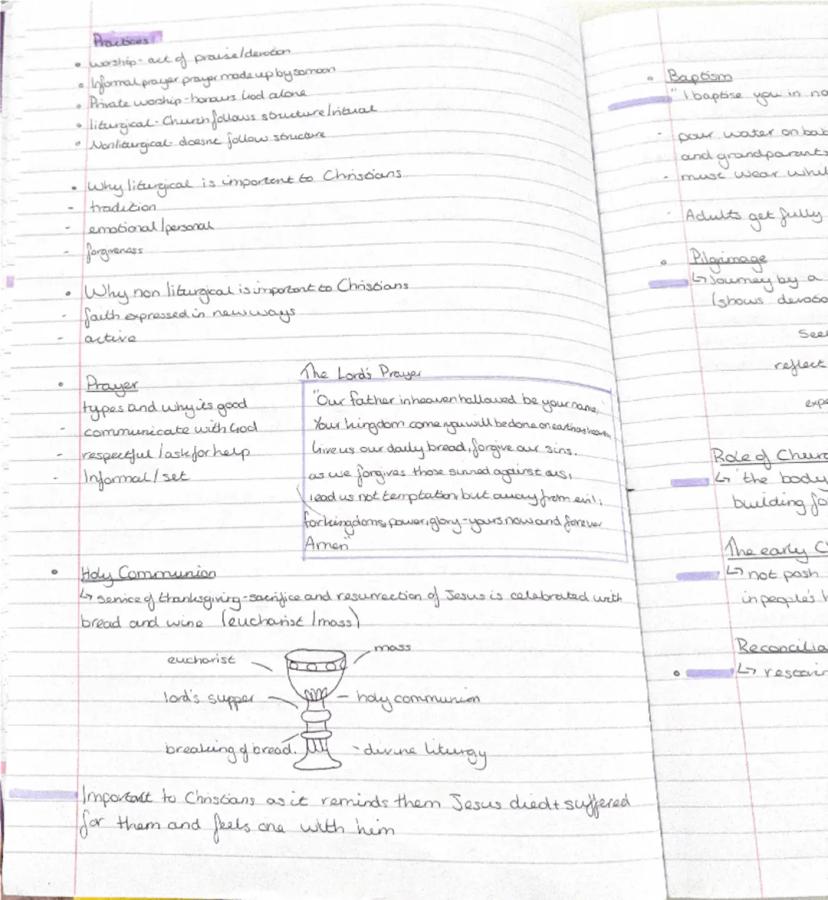 Practices
• worship - act of praise/devotion
• Informal prayer prayer made up by someon
• Private worship - honours God alone
• liturgical - Church follows structure/ritual
• Nonliturgical - doesnt follow structure
• Why liturgical is important to Christians
- tradition
- emotional/personal
- forgiveness
• Why non liturgical is important to Christians
- faith expressed in new ways
- active
• Prayer
types and why its good
- communicate with God
- respectful/ask for help
- Informal/set
The Lord's Prayer
"Our father in heaven hallowed be your name,
Your kingdom come you will be done on earth as heaven
Give us our daily bread, forgive our sins.
as we forgives those sinned against us,
lead us not temptation but away from evil;
for kingdoms, power, glory - yours now and forever
Amen"
• Holy Communion
↳ service of thanksgiving - sacrifice and resurrection of Jesus is celebrated with
bread and wine (eucharist/mass)
eucharist
mass
lord's supper
- holy communion
breaking of bread.
- divine liturgy
Important to Christians as it reminds them Jesus died + suffered
for them and feels one with him
• Baptism
"I baptise you in
- pour water on
and grandparents
- must wear
- Adults get fully
• Pilgrimage
↳ Journey by a
(shows
reflect
Role of
↳ 'the body
building
The early
↳ not
in people's
•
↳